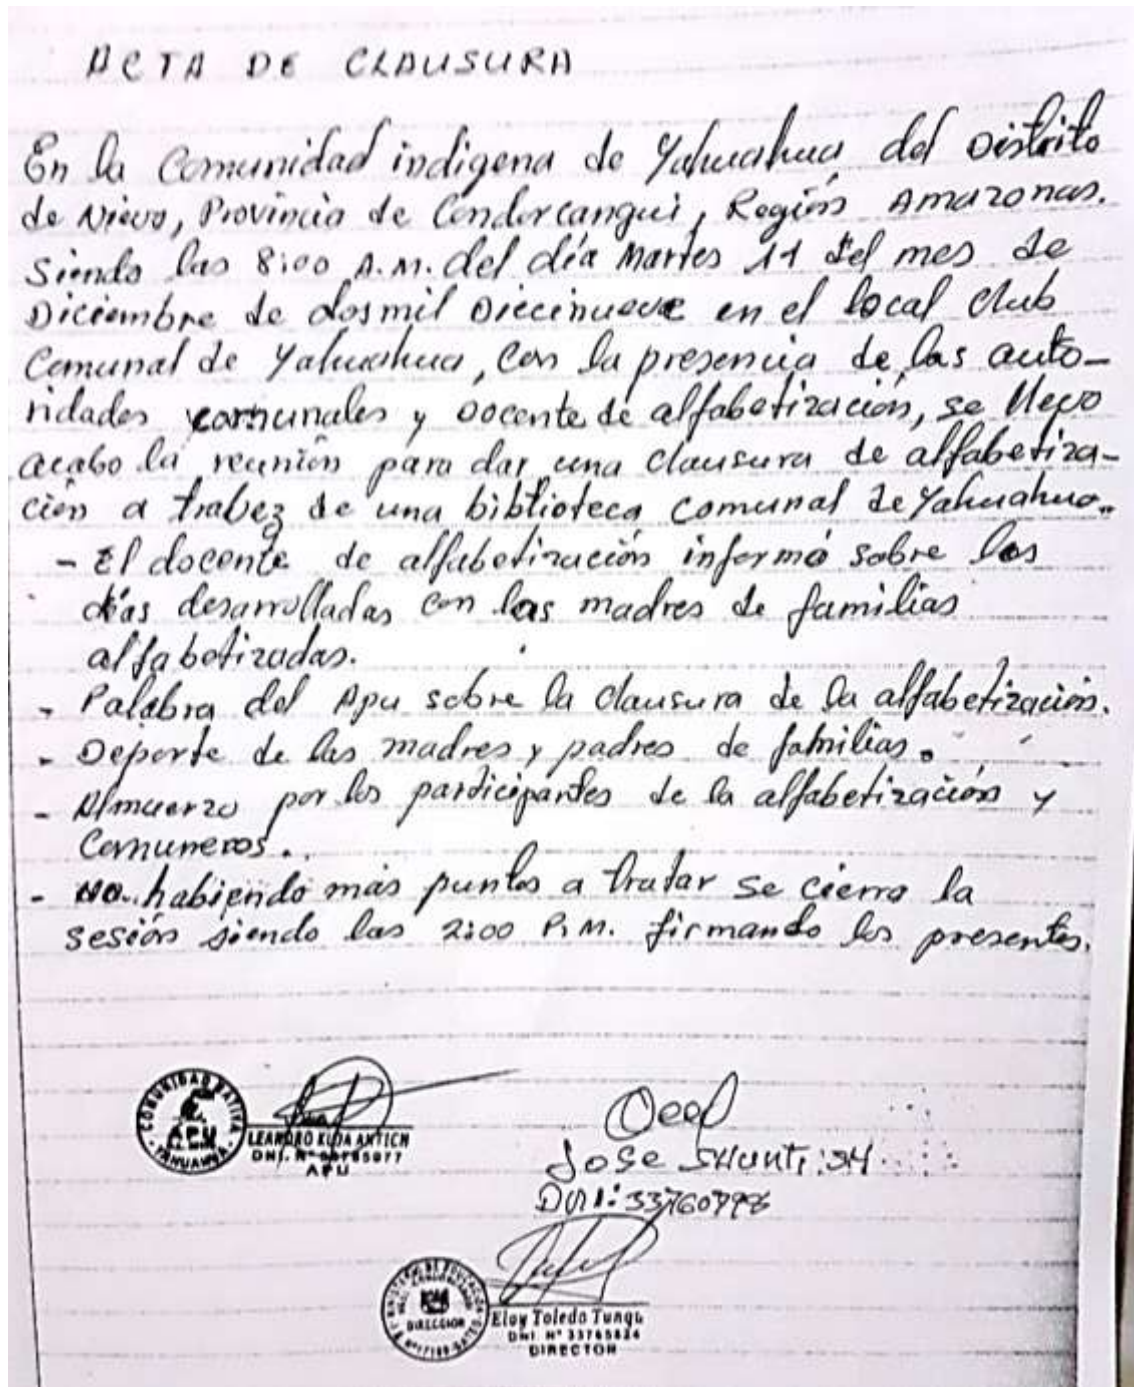 ACTA DE CLAUSURA
En la Comunidad indigena de Yahuahua, del Distrito
de Nieva, Provincia de Condorcanqui, Región Amazonas.
Siendo las 8:00 A.M. del día Martes 11 del mes de
Diciembre de dosmil Diecinueve en el local Club
Comunal de Yahuahua, con la presencia de las auto-
ridades comunales y Docente de alfabetización, se llevo
acabo la reunión para dar una clausura de alfabetiza-
ción a trabez de una biblioteca comunal de Yahuahua..
- El docente de alfabetización informó sobre los
días desarrolladas con las madres de familias
alfabetizadas.
- Palabra del Apu sobre la clausura de la alfabetización.
- Deporte de las madres y padres de familias.
- Almuerzo por los participantes de la alfabetización y
Comuneros..
- No habiendo más puntos a tratar se cierra la
sesión siendo las 2:00 P.M. firmando los presentes.
COMUNIDAD NATIVA
YAHUAHUA
LEANDRO KUJA ANTICH
DNI. N°
APU
Jose SHunti
DNI:
DIRECCION
Eloy Toledo
DNI N° 33765824
DIRECTOR